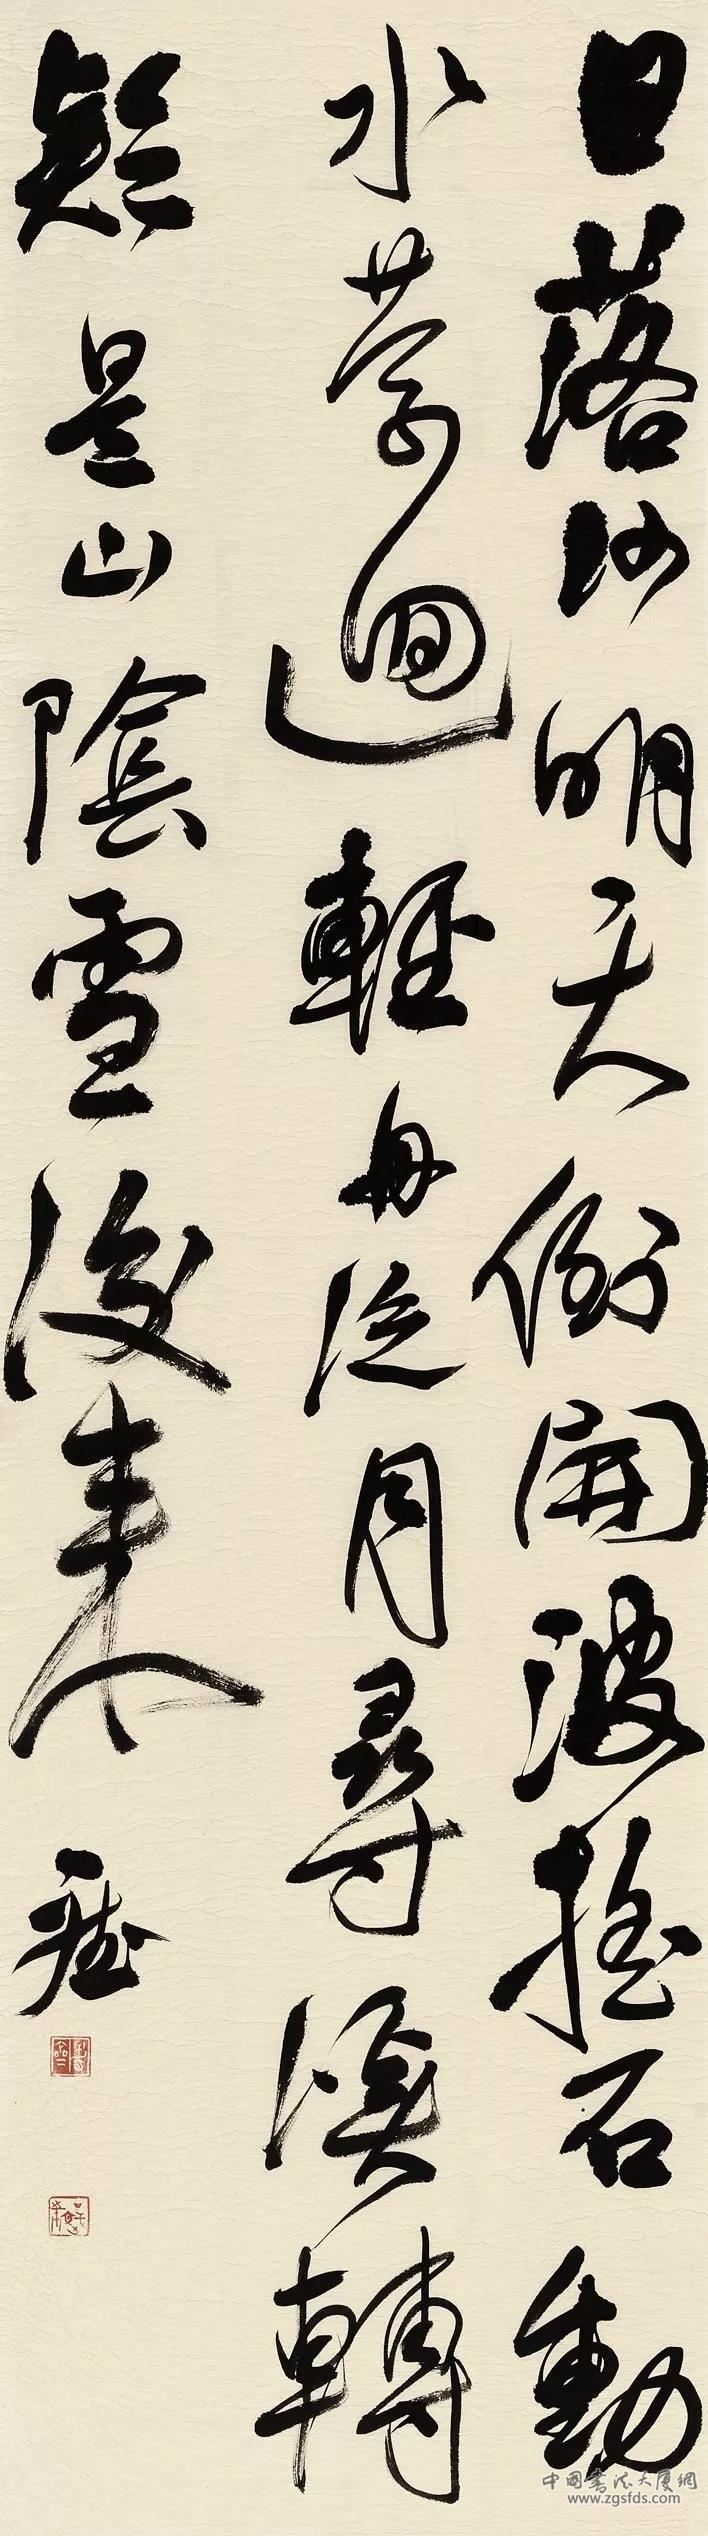 日落沙明天倒開波搖石動
水縈迴輕舟泛月尋溪轉
疑是山陰雪後來
中国书法大厦網
www.zgsfds.com